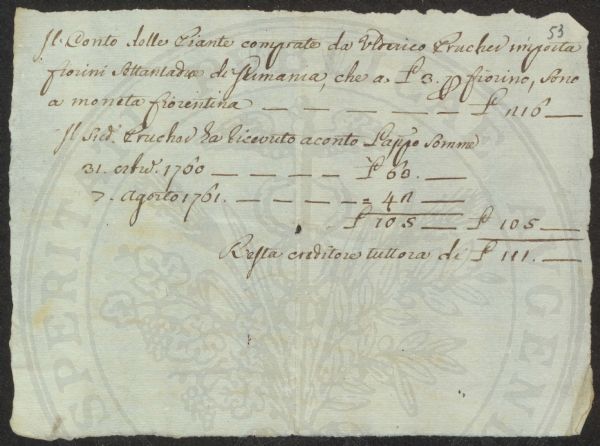 53
Il Conto delle Piante comprate da Ulderico Prucher importa
fiorini Settantadue di Germania, che a £ 3. p fiorino, sono
a moneta fiorentina — — — — — — £ 216 —
Il Sud. Prucher ha ricevuto a conto l'app.º somme
31. Xbre. 1760 — — — — — £ 60. —
7. agosto 1761. — — — — — = 45 —
£ 105 — £ 105 —
Resta creditore tuttora di £ 111. —
SPERIT